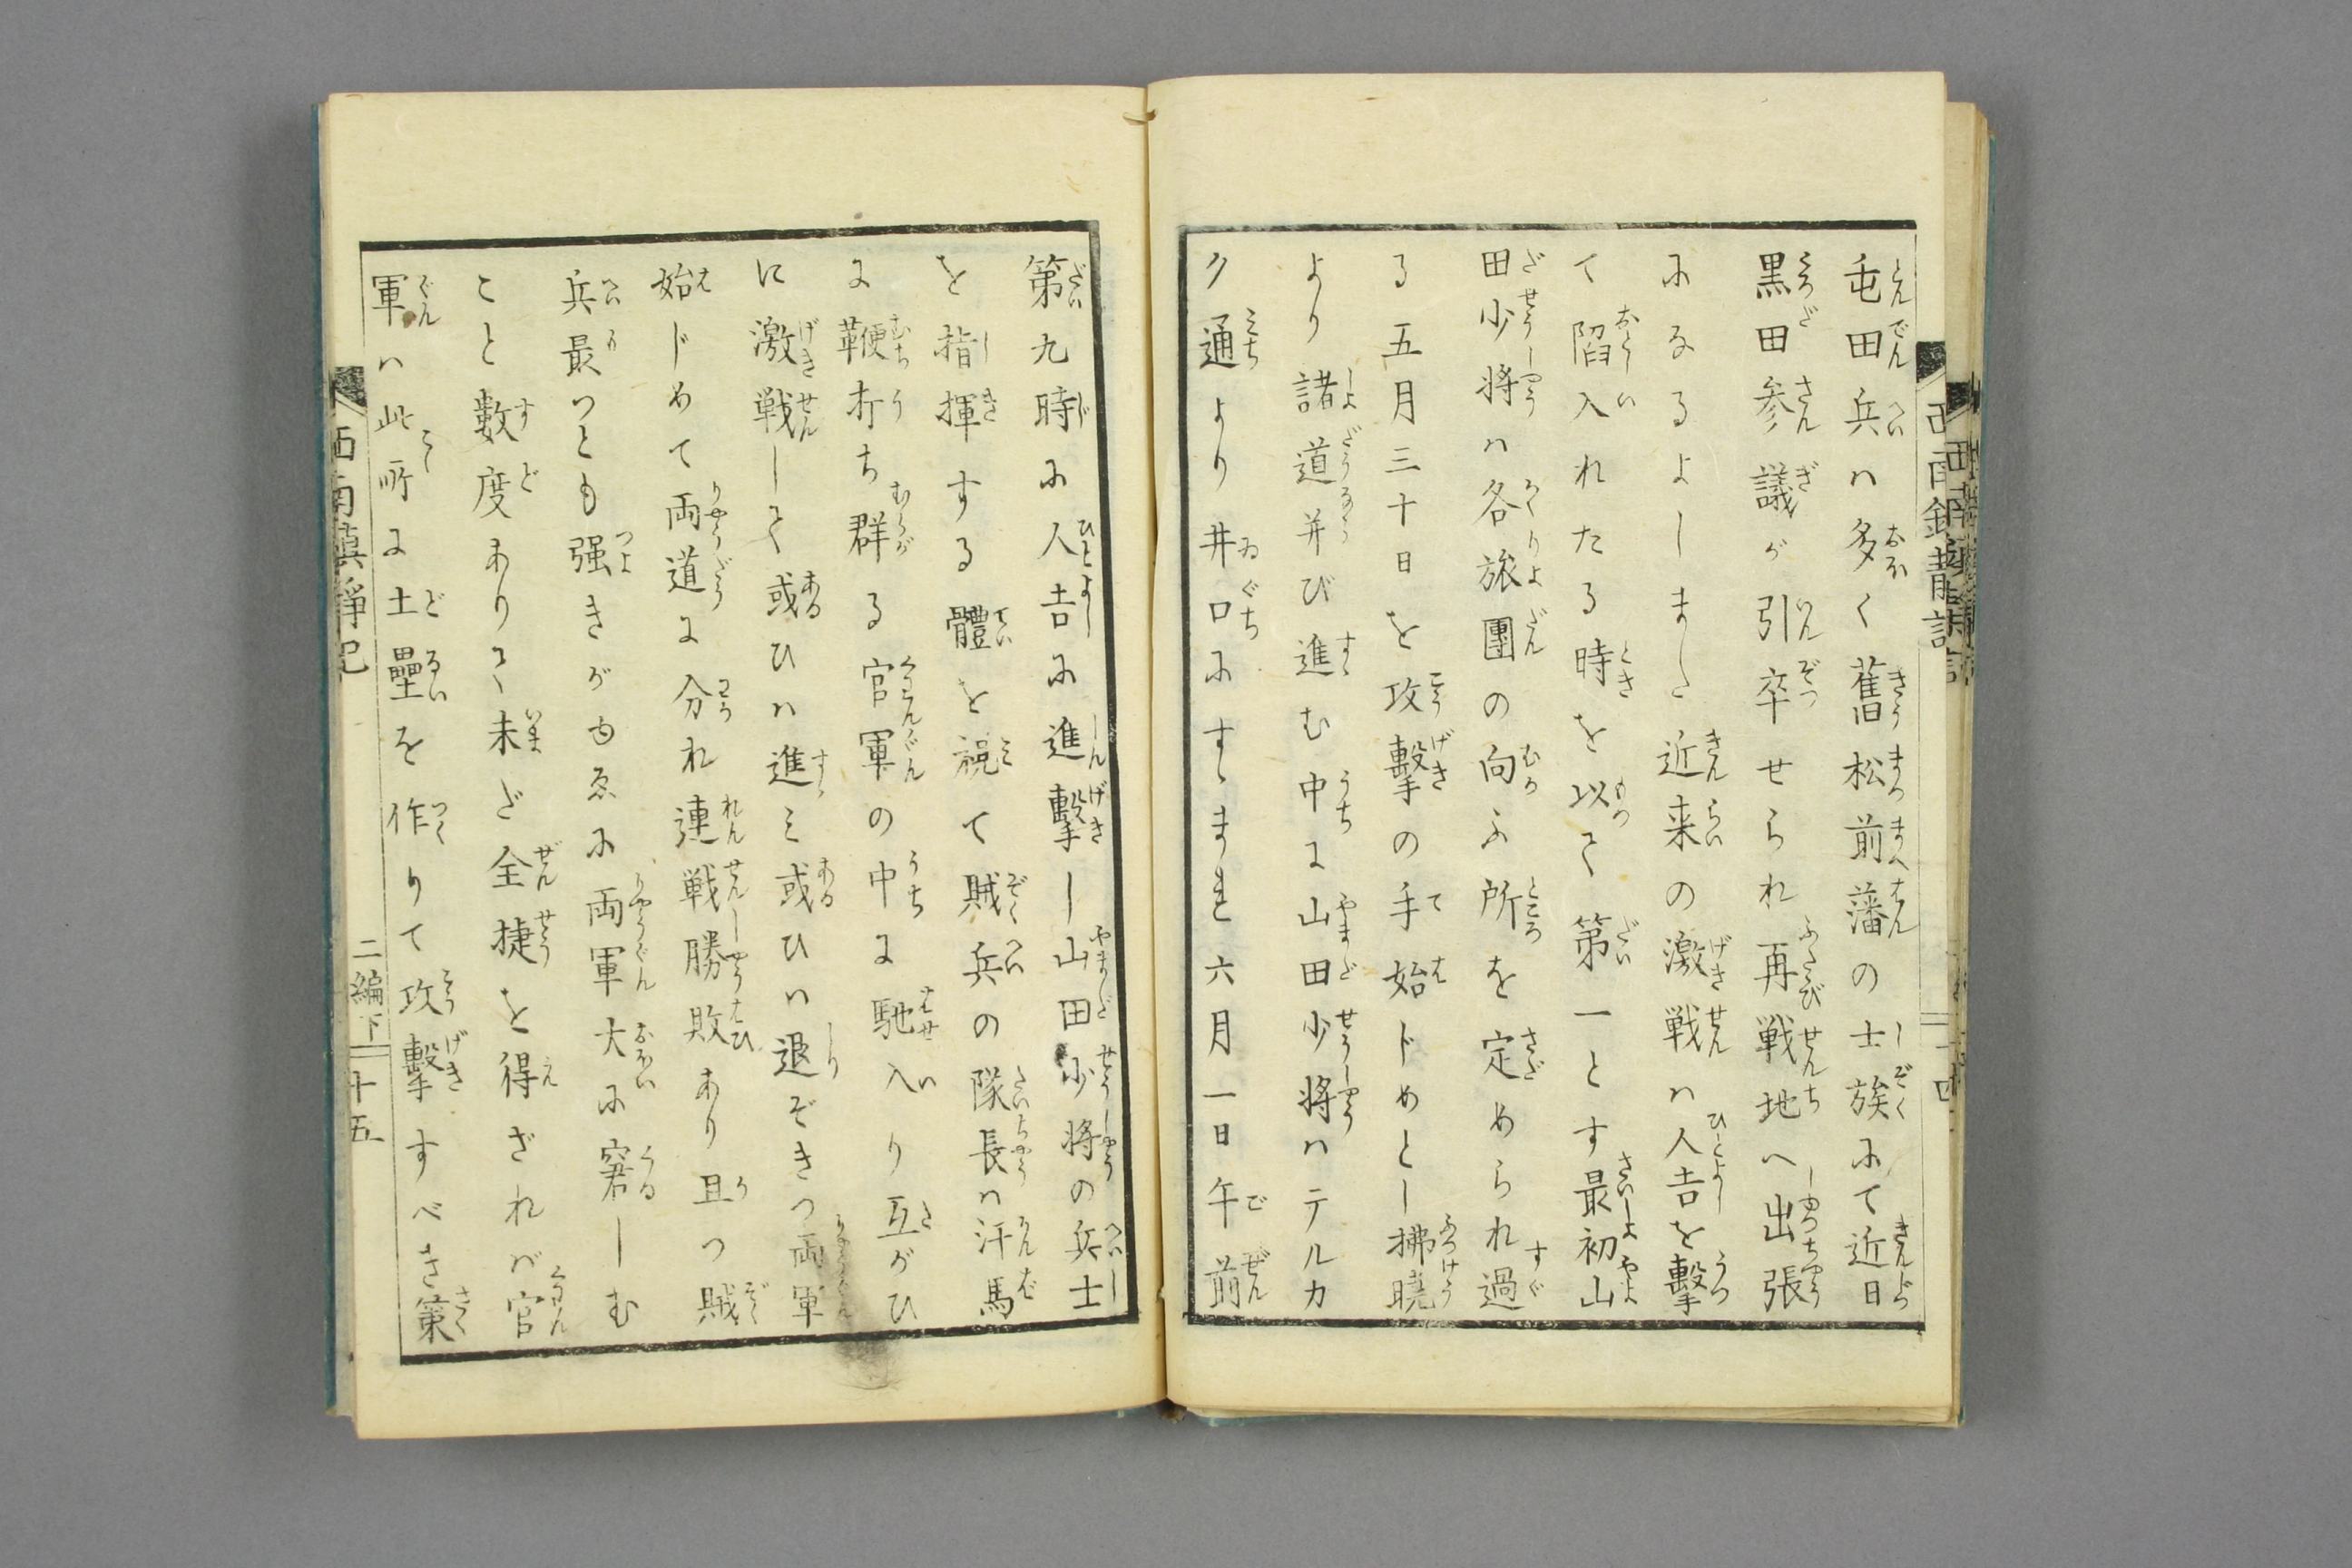 屯田兵ハ多く舊松前藩の士族にて近日
黒田参議が引卒せられ再戦地へ出張
になるよしまた近来の激戦ハ人吉を撃
て陷入れたる時を以て第一とす最初山
田少将ハ各旅團の向ふ所を定められ過
る五月三十日を攻撃の手始ドめとし拂曉
より諸道并び進む中に山田少将ハテルカ
ク通より井口にすゝまれ六月一日午前
第九時に人吉に進撃し山田少将の兵士
を指揮する體を視て賊兵の隊長ハ汗馬
に鞭打ち群る官軍の中に馳入り互がひ
に激戦して或ひハ進ミ或ひハ退ぞきつ両軍
始じめて両道に分れ連戦勝敗あり且つ賊
兵最つとも强きがゆゑに両軍大に窘しむ
こと數度ありて未だ全捷を得ざれバ官
軍ハ此所に土壘を作りて攻擊すべき策
二編下 十五